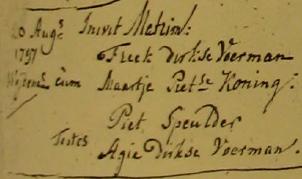 20 Augs Inivit Matrim:
1797 Freek Dirkse Voerman
cum Maartje Pietse Koning:
Piet Speulder
Testes
Agie Dirkse Voerman.